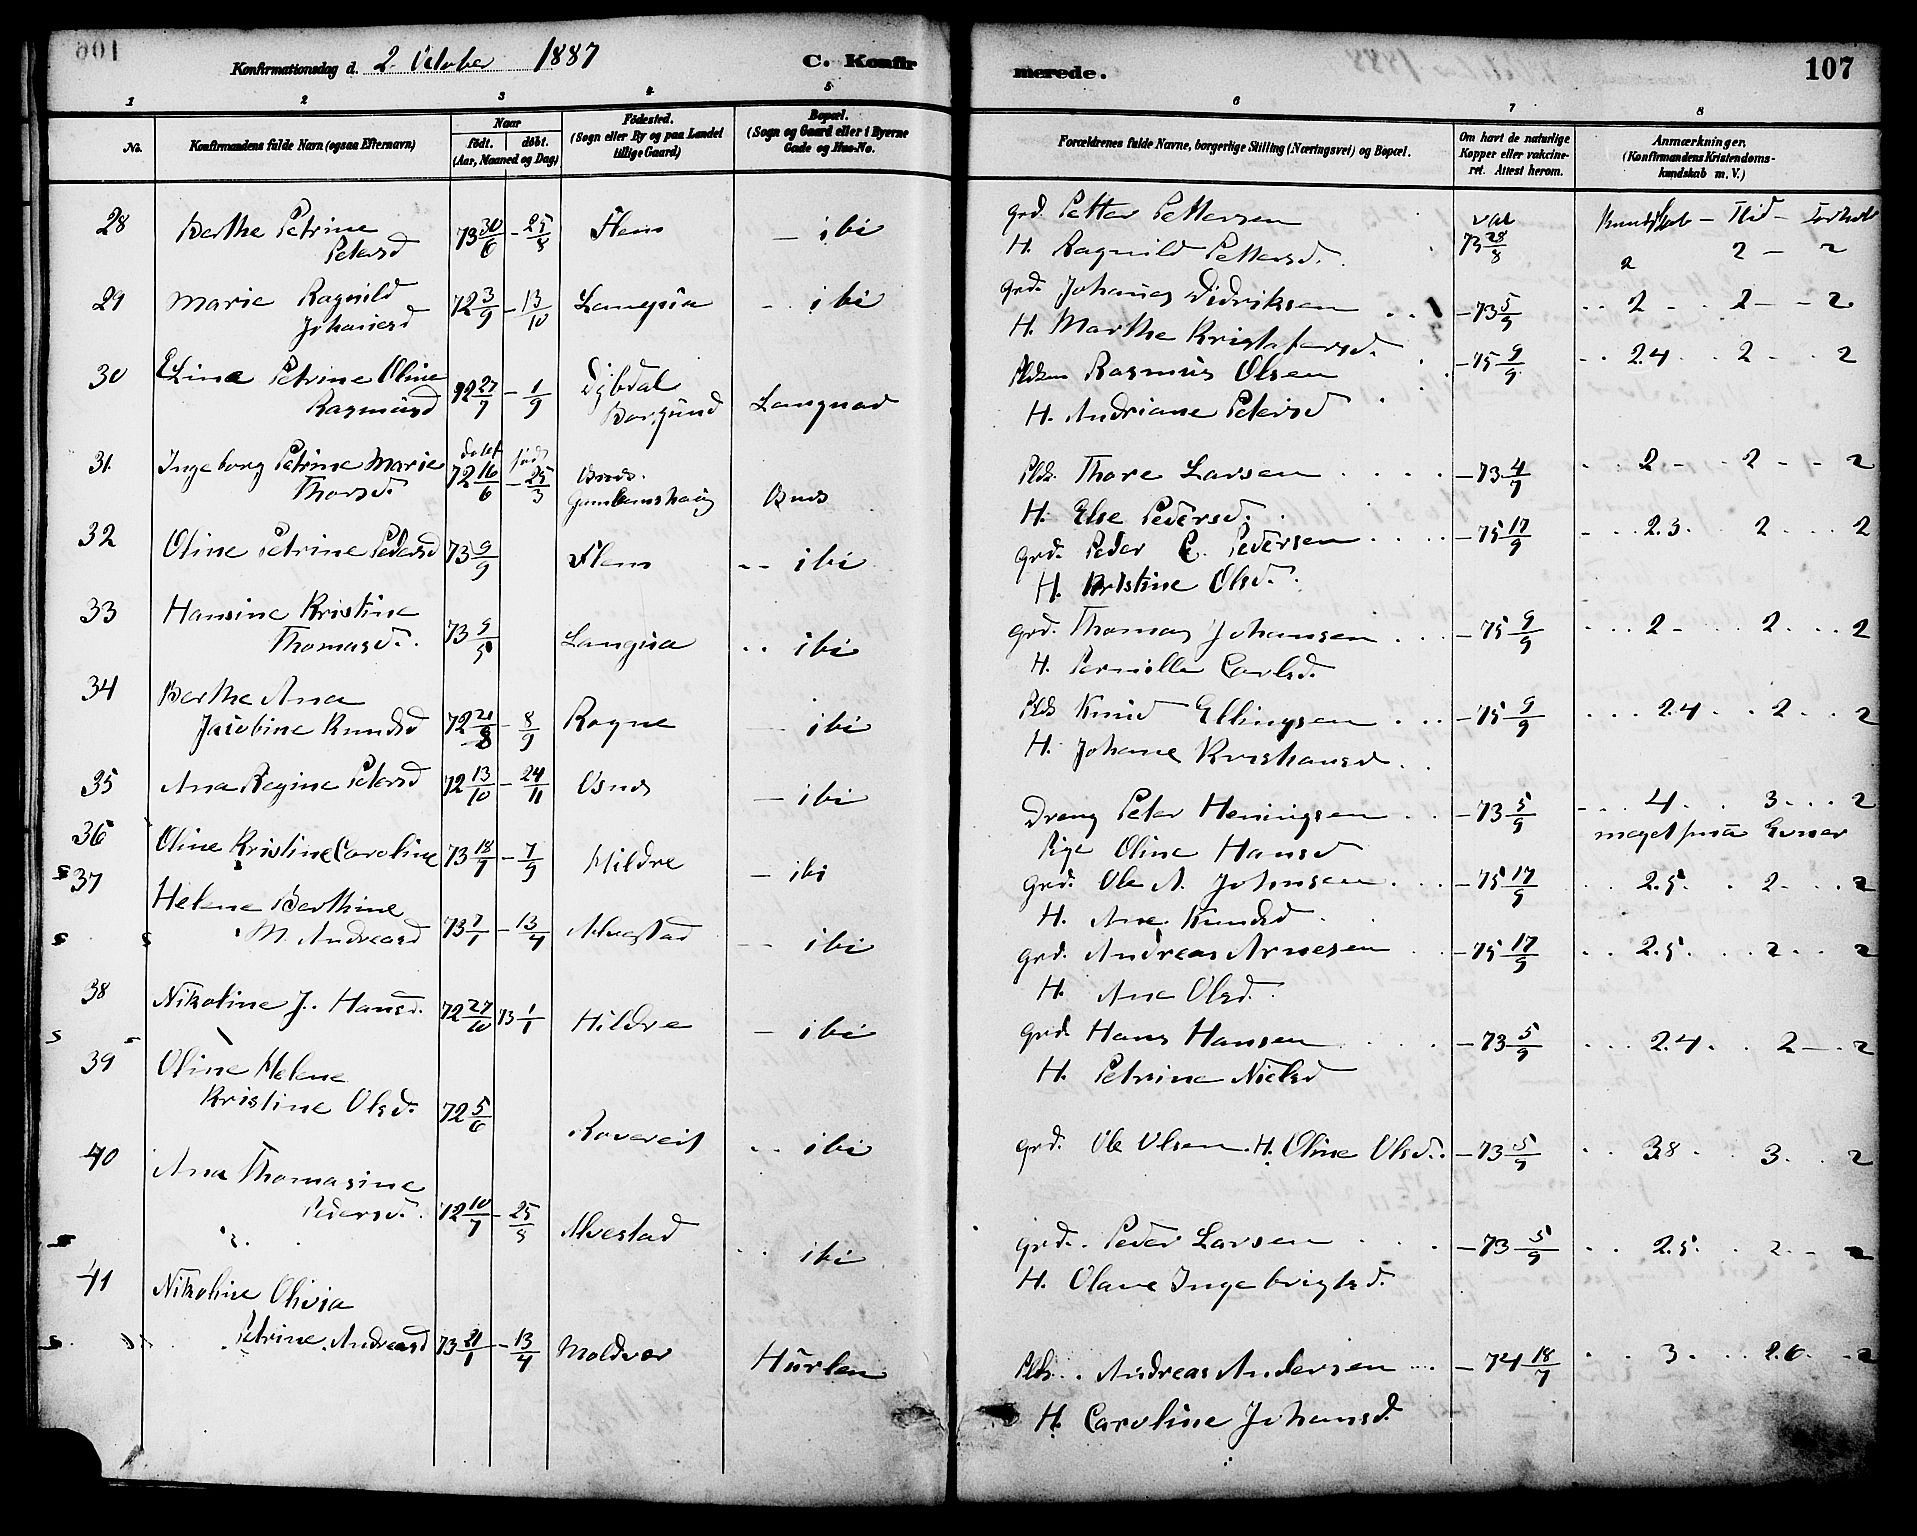 106
Konfirmationsdag d. 2. October 1887
C. Konfir
merede.
107
1 2 3 4 5 6 7 8
No.
Konfirmandens fulde Navn (ogsaa Efternavn)
Naar
født. døbt.
(Aar, Maaned og Dag)
Fødested.
(Sogn eller By og paa Landet
tillige Gaard)
Bopæl.
(Sogn og Gaard eller i Byerne
Gade og Hus-No.
Forældrenes fulde Navne, borgerlige Stilling (Næringsvei) og Bopæl.
Om havt de naturlige
Kopper eller vakcine-
ret. Attest herom.
Anmærkninger.
(Konfirmandens Kristendoms-
kundskab m. V.)
28 Berthe Petrine 73 30/6 - 25/8 Flem - ibi grd. Petter Pettersen vac Kundskab - Flid - Forhold
Petersd H. Ragnild Pettersd. 73 28/8 2 2 - 2
29 Marie Ragnild 72 3/9 - 13/10 Longva - ibi grd. Johanes Didriksen - 73 5/9 2 - 2 - 2
Johanesd H. Marthe Kristofersd.
30 Elina Petrine Oline 72 27/7 - 1/9 Dybdal Rasmus Olsen - 75 9/9 2.4 2 - 2
Rasmusd Borgund H. Andriane Petersd
31 Ingeborg Petrine Marie døbt 72 16/6 født - 25/3 Plds. Thore Larsen - 73 4/7 2 - 2 - 2
Thorsd. Osnes H. Else Pedersd.
32 Oline Petrine Pedersd 73 9/9 Flem - ibi grd. Peder E. Pedersen - 75 17/9 2.3. 2 2
H. Kristine Olsd.
33 Hansine Kristine 73 9/5 Longva ibi grd. Thomas Johansen - 75 9/9 2 - 2 2
Thomasd. H. Pernille Carlsd.
34 Berthe Ana Rogne - ibi Plds Knud Ellingsen - 75 9/9 2.4 2 2
Jacobine Knudsd - 8/9 H. Johane Kristiansd
35 Ana Regine Petersd 72 13/10 - 24/11 Osnes - ibi Dreng Peter Heningsen - 73 5/9 4 3 2
Pige Oline Hansd meget smaa Evner
36 Oline Kristine Caroline 73 18/7 - 7/9 Hildre - ibi grd. Ole A. Johnsen - 75 17/9 2.5. 2 2
H. Ane Knudsd
37 Helene Berthine 73 7/1 - 13/4 Alvestad - ibi grd. Andreas Arnesen - 75 17/9 2.5 2 2
M. Andreasd H. Ane Olsd.
38 Nikoline J. Hansd. 72 27/10 73 1/1 Hildre - ibi grd Hans Hansen - 73 5/9 2.4 2 - 2
H. Petrine Nielsd
39 Oline Helene 72 5/6 ibi grd. Ole Olsen. H. Oline Olsd. - 73 5/9 3.8 3 2
Kristine Olsd.
40 Ana Thomasine 72 10/7 - 25/8 Alvestad ibi grd. Peder Larsen - 73 5/9 2.5. 2 - 2
Pedersd. H. Olave Ingebrigtsd.
41 Nikoline Olivia 73 21/1 - 13/4 Moldver Hurlen Plds. Andreas Andersen - 74 18/7 3 2.6 2
Petrine Andreasd H. Caroline Johansd.